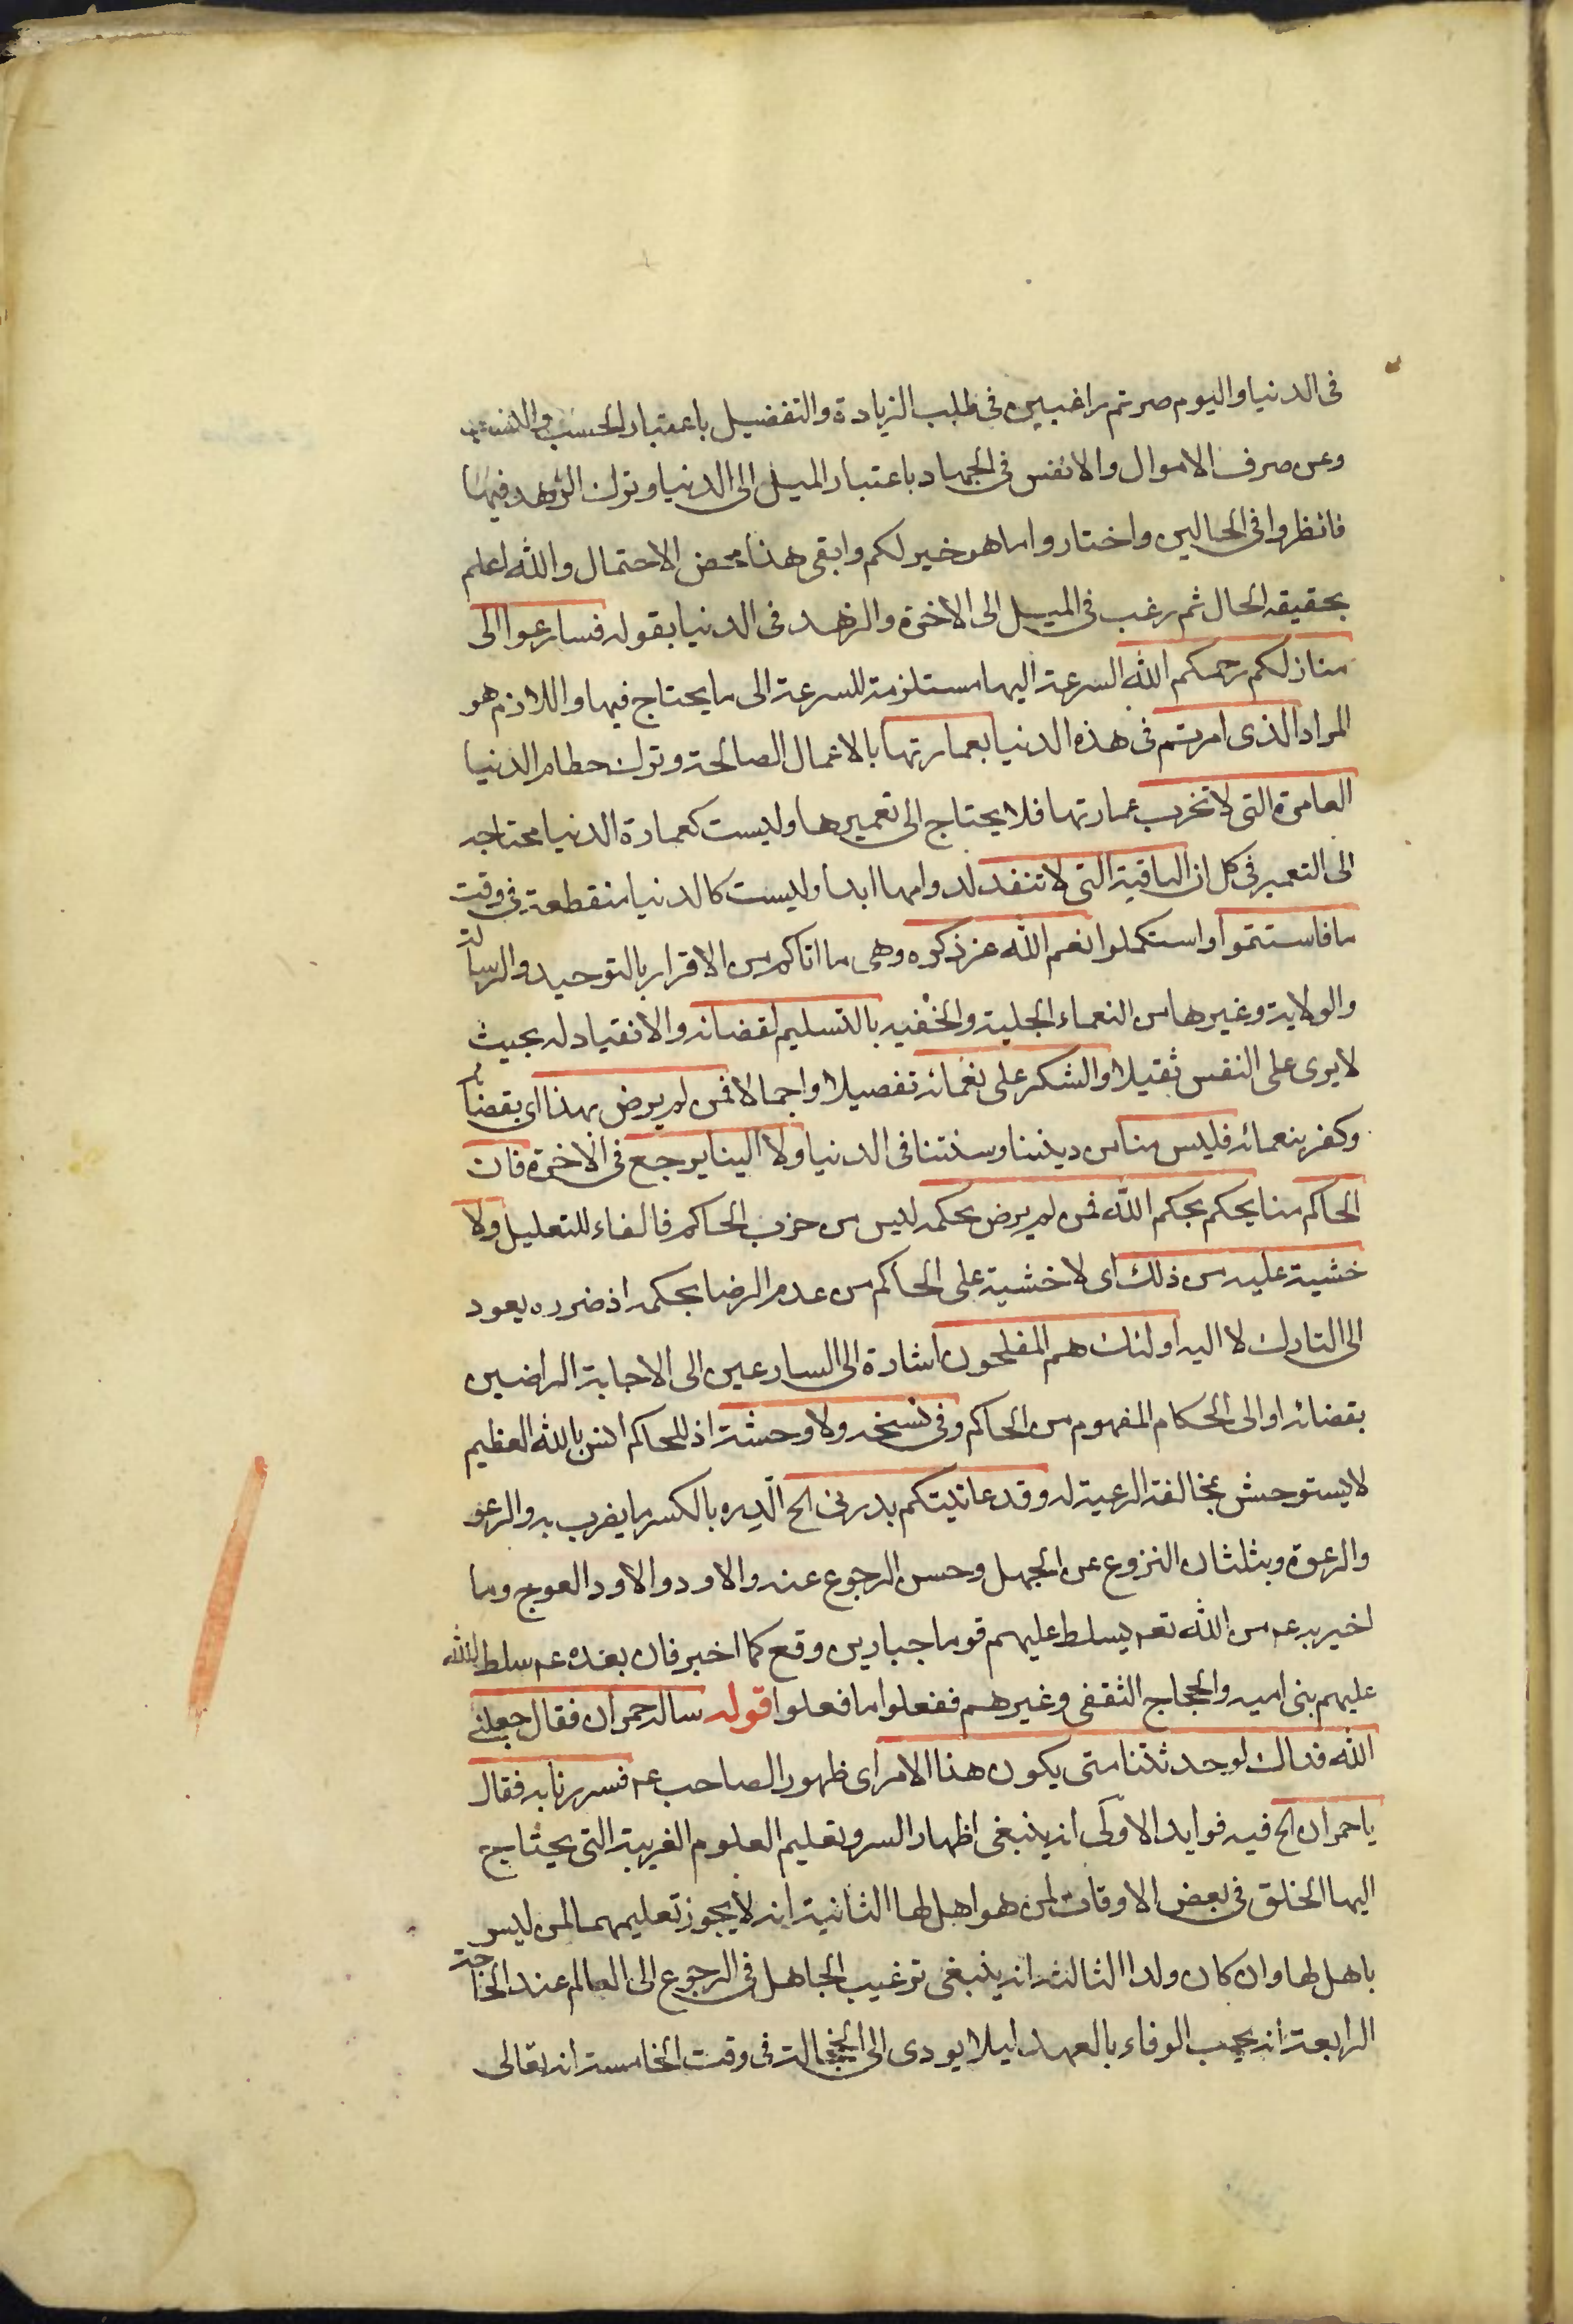 فى الدنيا واليوم صرتم راغبين فى طلب الزيادة والتفضيل باعتبار الحسب والنسب
وعن صرف الاموال والانفس فى الجهاد باعتبار الميل الى الدنيا وترك الزهد فيها
فانظروا فى الحالين واختاروا ما هو خير لكم وابقى هذا محض الاحتمال والله اعلم
بحقيقه الحال ثم رغب فى الميل الى الاخرة والزهد فى الدنيا بقوله فسارعوا الى
منازلكم رحمكم الله السرعة اليها مستلزمة للسرعة الى ما يحتاج فيها واللازم هو
المراد الذى امرتم فى هذه الدنيا بعمارتها بالاعمال الصالحة وترك حطام الدنيا
العامرة التى لا تخرب عمارتها فلا يحتاج الى تعميرها وليست كعمارة الدنيا محتاجه
الى التعمير فى كل ان الباقية التى لا تنفد لدوامها ابدا وليست كالدنيا منقطعة فى وقت
ما فاستتموا واستكملوا نعم الله عز ذكره وهى ما اتاكم من الاقرار بالتوحيد والرسالة
والولاية وغيرها من النعماء الجلية والخفيه بالتسليم لقضائه والانقياد له بحيث
لا يرى على النفس ثقيلا والشكر على نعمائه تفصيلا واجمالا فمن لم يرض بهذا اى بقضائه
وكفر بنعمائه فليس منا من ديننا وسنتنا فى الدنيا ولا الينا يرجع فى الاخرة فان
الحاكم منا يحكم بحكم الله فمن لم يرض بحكمه ليس من حزب الحاكم فالفاء للتعليل ولا
خشية عليه من ذلك اى لا خشية على الحاكم من عدم الرضا بحكمه اذ ضرره يعود
الى التارك لا اليه اولئك هم المفلحون اشارة الى السارعين الى الاجابة الراضين
بقضائه او الى الحكام المفهوم من الحاكم وفى نسخه ولا وحشة اذ للحاكم انس بالله العظيم
لا يستوحش بمخالفة الرعية له وقد عاتبتكم بدرتى الخ الدره بالكسر ما يضرب به والرعو
والرعوة ويثلثان النزوع عن الجهل وحسن الرجوع عنه والاود والاود العوج وما
اخبر به عم من الله تعم يسلط عليهم قوما جبارين وقع كما اخبر فان بعده عم سلط الله
عليهم بنى اميه والحجاج الثقفى وغيرهم ففعلوا ما فعلوا قوله ساله حمران فقال جعلنى
الله فداك لو حدثتنا متى يكون هذا الامر اى ظهور الصاحب عم فسررنا به فقال
يا حمران الخ فيه فوايد الاولى انه ينبغى اظهار السر وتعليم العلوم الغريبة التى يحتاج
اليها الخلق فى بعض الاوقات لمن هو اهل لها الثانية انه لا يجوز تعليمهما لمن ليس
باهل لها وان كان ولدا الثالثة انه ينبغى ترغيب الجاهل فى الرجوع الى العالم عند الحاجة
الرابعة انه يجب الوفاء بالعهد ليلا يودى الى الخجالة فى وقت الخامسة انه تعالى